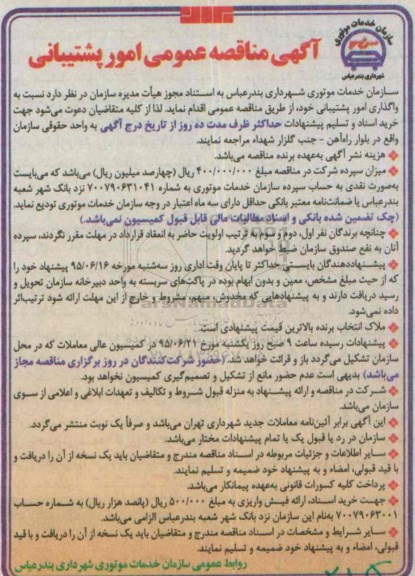 سازمان خدمات موتوری
شهرداری بندرعباس
آگهی مناقصه عمومی امور پشتیبانی
سازمان خدمات موتوری شهرداری بندرعباس به استناد مجوز هیأت مدیره سازمان در نظر دارد نسبت به
واگذاری امور پشتیبانی خود، از طریق مناقصه عمومی اقدام نماید. لذا از کلیه متقاضیان دعوت می‌شود جهت
خرید اسناد و تسلیم پیشنهادات حداکثر ظرف مدت ده روز از تاریخ درج آگهی به واحد حقوقی سازمان
واقع در بلوار راه‌آهن - جنب گلزار شهداء مراجعه نمایند.
هزینه نشر آگهی به‌عهده برنده مناقصه می‌باشد.
میزان سپرده شرکت در مناقصه مبلغ ۴۰۰/۰۰۰/۰۰۰ ریال (چهارصد میلیون ریال) می‌باشد که می‌بایست
به‌صورت نقدی به حساب سپرده سازمان خدمات موتوری به شماره ۷۰۰۷۹۰۶۳۱۰۴۱ نزد بانک شهر شعبه
بندرعباس یا ضمانت‌نامه معتبر بانکی حداقل دارای سه ماه اعتبار در وجه سازمان خدمات موتوری تودیع نماید.
(چک تضمین شده بانکی و اسناد مطالبات مالی قابل قبول کمیسیون نمی‌باشد.)
چنانچه برندگان نفر اول، دوم و سوم به ترتیب اولویت حاضر به انعقاد قرارداد در مهلت مقرر نگردند، سپرده
آنان به نفع صندوق سازمان ضبط خواهد گردید.
پیشنهاددهندگان بایستی حداکثر تا پایان وقت اداری روز سه‌شنبه مورخه ۹۵/۰۶/۱۶ پیشنهاد خود را
که از حیث مبلغ مشخص، معین و بدون ابهام بوده در پاکت‌های سربسته به واحد دبیرخانه سازمان تحویل و
رسید دریافت دارند و به پیشنهادهایی که مخدوش، مبهم، مشروط و خارج از این مهلت ارائه شود ترتیب‌اثر
داده نمی‌شود.
ملاک انتخاب برنده بالاترین قیمت پیشنهادی است.
پیشنهادات رسیده ساعت ۹ صبح روز یکشنبه مورخ ۹۵/۰۶/۲۱ در کمیسیون عالی معاملات که در محل
سازمان تشکیل می‌گردد باز و قرائت خواهد شد. (حضور شرکت‌کنندگان در روز برگزاری مناقصه مجاز
می‌باشد) بدیهی است عدم حضور مانع از تشکیل و تصمیم‌گیری کمیسیون نخواهد بود.
شرکت در مناقصه و ارائه پیشنهاد به منزله قبول شروط و تکالیف و تعهدات ابلاغی و اعلامی از سوی
سازمان می‌باشد.
این آگهی برابر آئین‌نامه معاملات جدید شهرداری تهران می‌باشد و صرفاً یک نوبت منتشر می‌گردد.
سازمان در رد یا قبول یک یا تمام پیشنهادات مختار می‌باشد.
سایر اطلاعات و جزئیات مربوطه در اسناد مناقصه مندرج و متقاضیان باید یک نسخه از آن را دریافت و
با قید قبولی، امضاء و به پیشنهاد خود ضمیمه و تسلیم نمایند.
پرداخت کلیه کسورات قانونی به‌عهده پیمانکار می‌باشد.
جهت خرید اسناد، ارائه فیش واریزی به مبلغ ۵۰۰/۰۰۰ ریال (پانصد هزار ریال) به شماره حساب
۷۰۰۷۹۰۶۳۰۰۱ به‌نام این سازمان نزد بانک شهر شعبه بندرعباس الزامی می‌باشد.
سایر شرایط و مشخصات در اسناد مناقصه مندرج و متقاضیان باید یک نسخه از آن را دریافت و با قید
قبولی، امضاء و به پیشنهاد خود ضمیمه و تسلیم نمایند.
روابط عمومی سازمان خدمات موتوری شهرداری بندرعباس